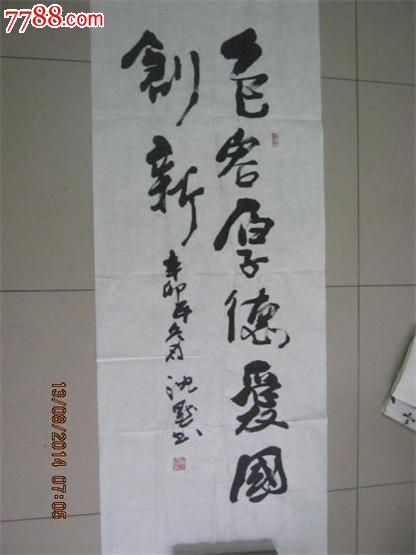 7788.com
包容厚德愛國
創新
辛卯年冬月 沈 书
13/08/2014 07:05